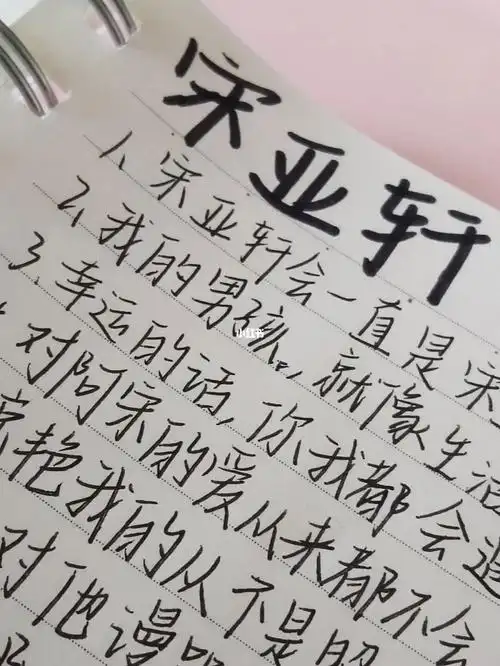 宋亚轩
1、宋亚轩会一直是宋
2、我的男孩,就像生活
3、幸运的话,你我都会遇
对阿宋的爱从来都不会
惊艳我的从不是
对他漫
小红书